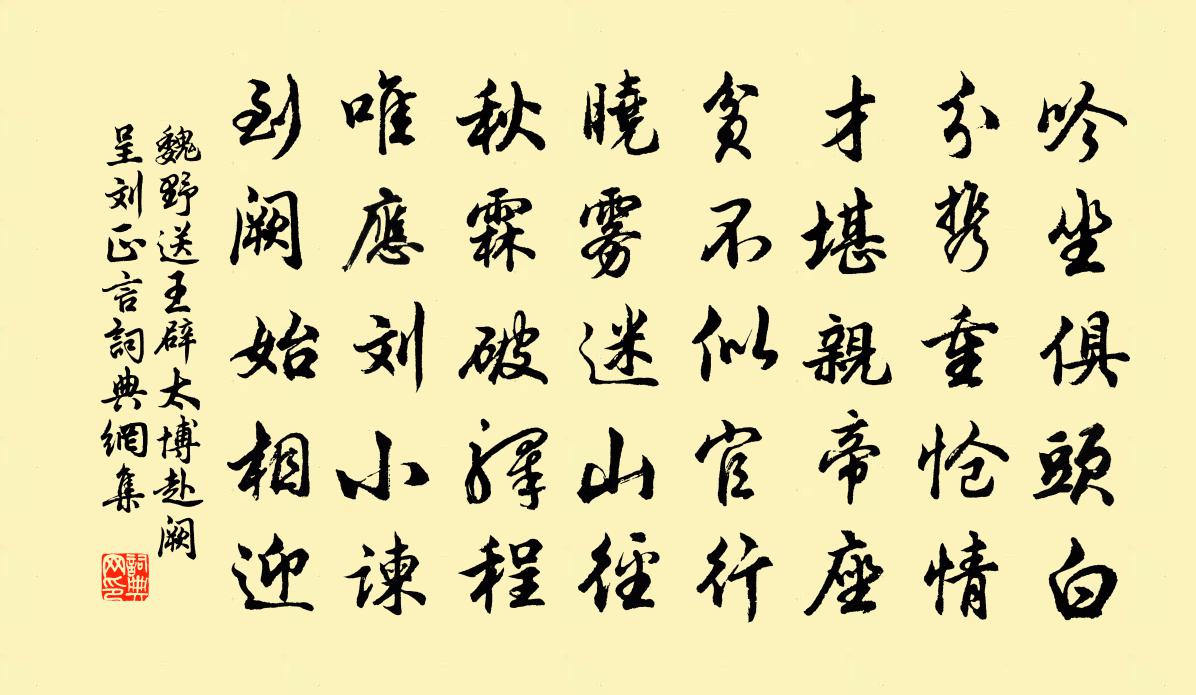 吟坐俱頭白
分携重愴情
才堪親帝座
貧不似官行
曉雾迷山徑
秋霖破驛程
唯應刘小諫
到阙始相迎
魏野送王辟太博赴阙
呈刘正言詞典網集
詞典
网印